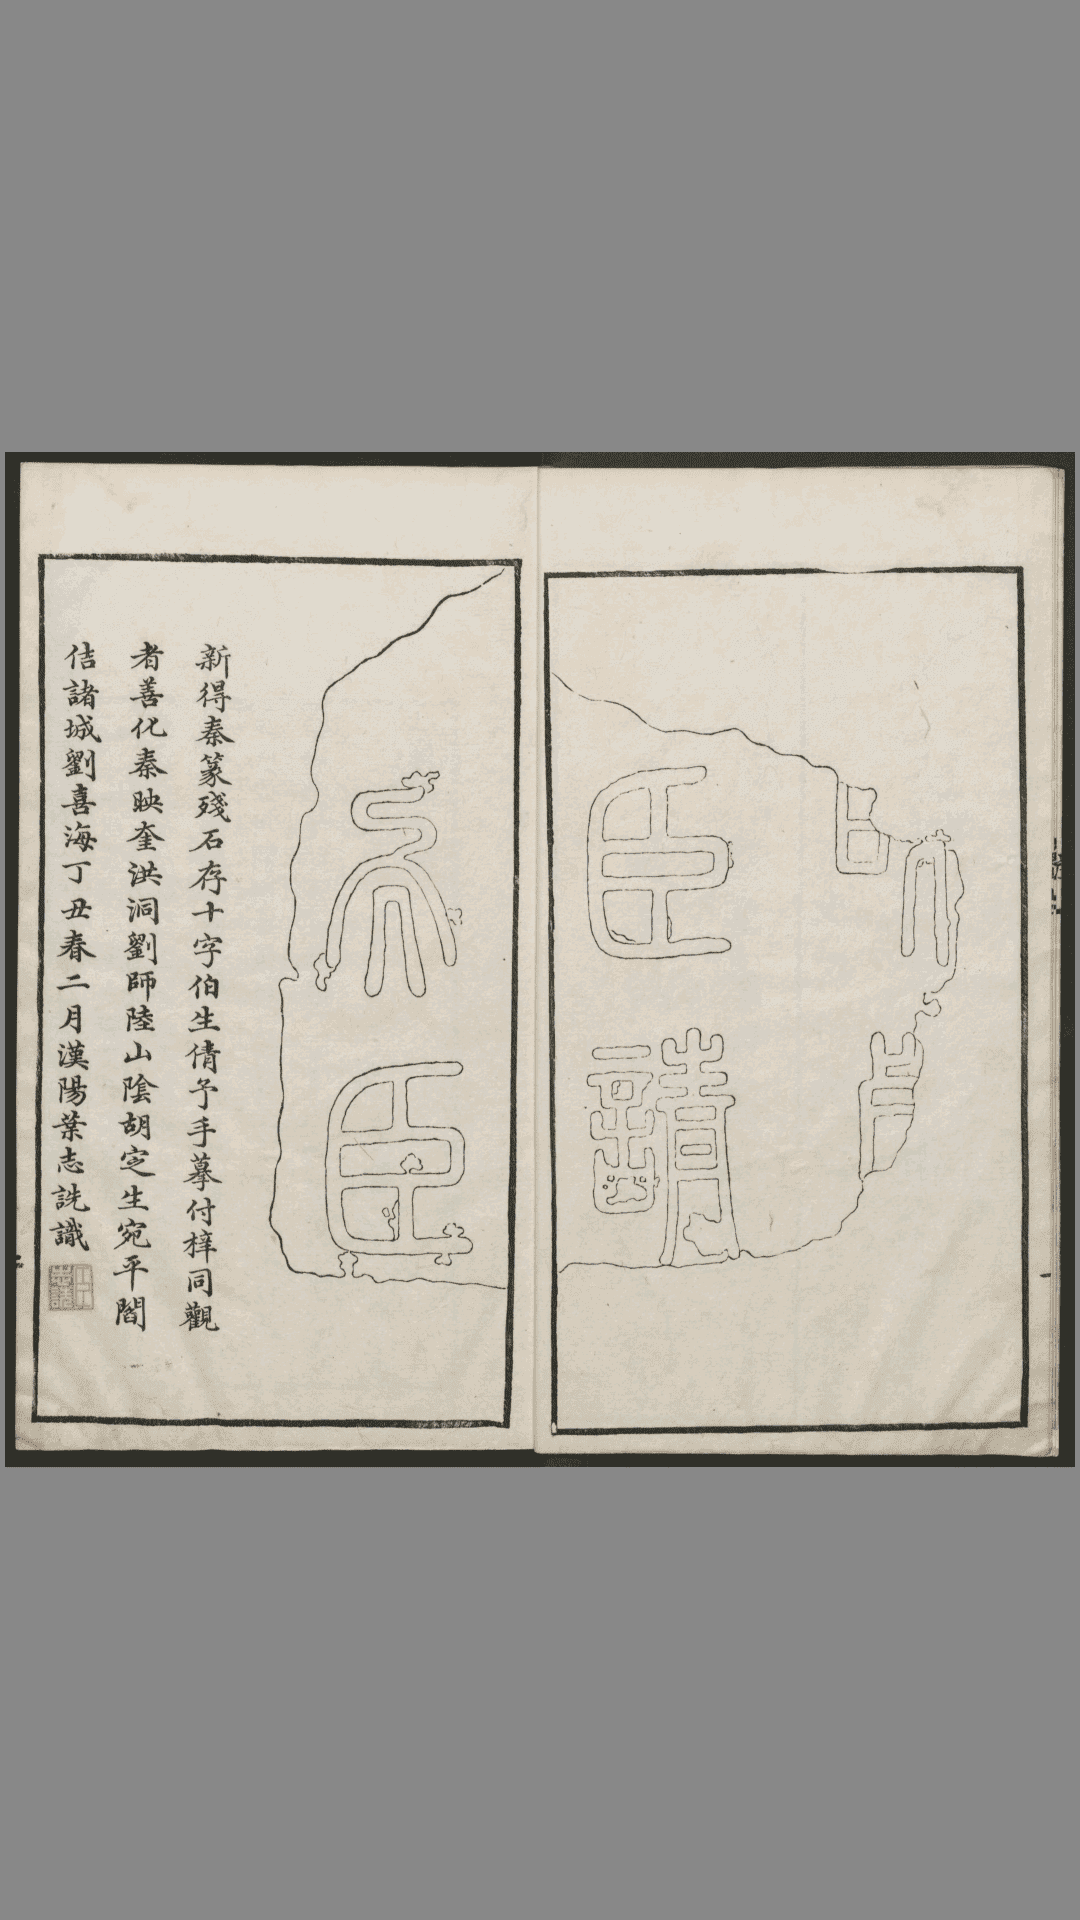 昧死
臣請
矣臣
新得秦篆殘石存十字伯生倩予手摹付梓同觀
者善化秦映奎洪洞劉師陸山陰胡㝎生宛平閻
佶諸城劉喜海丁丑春二月漢陽葉志詵識